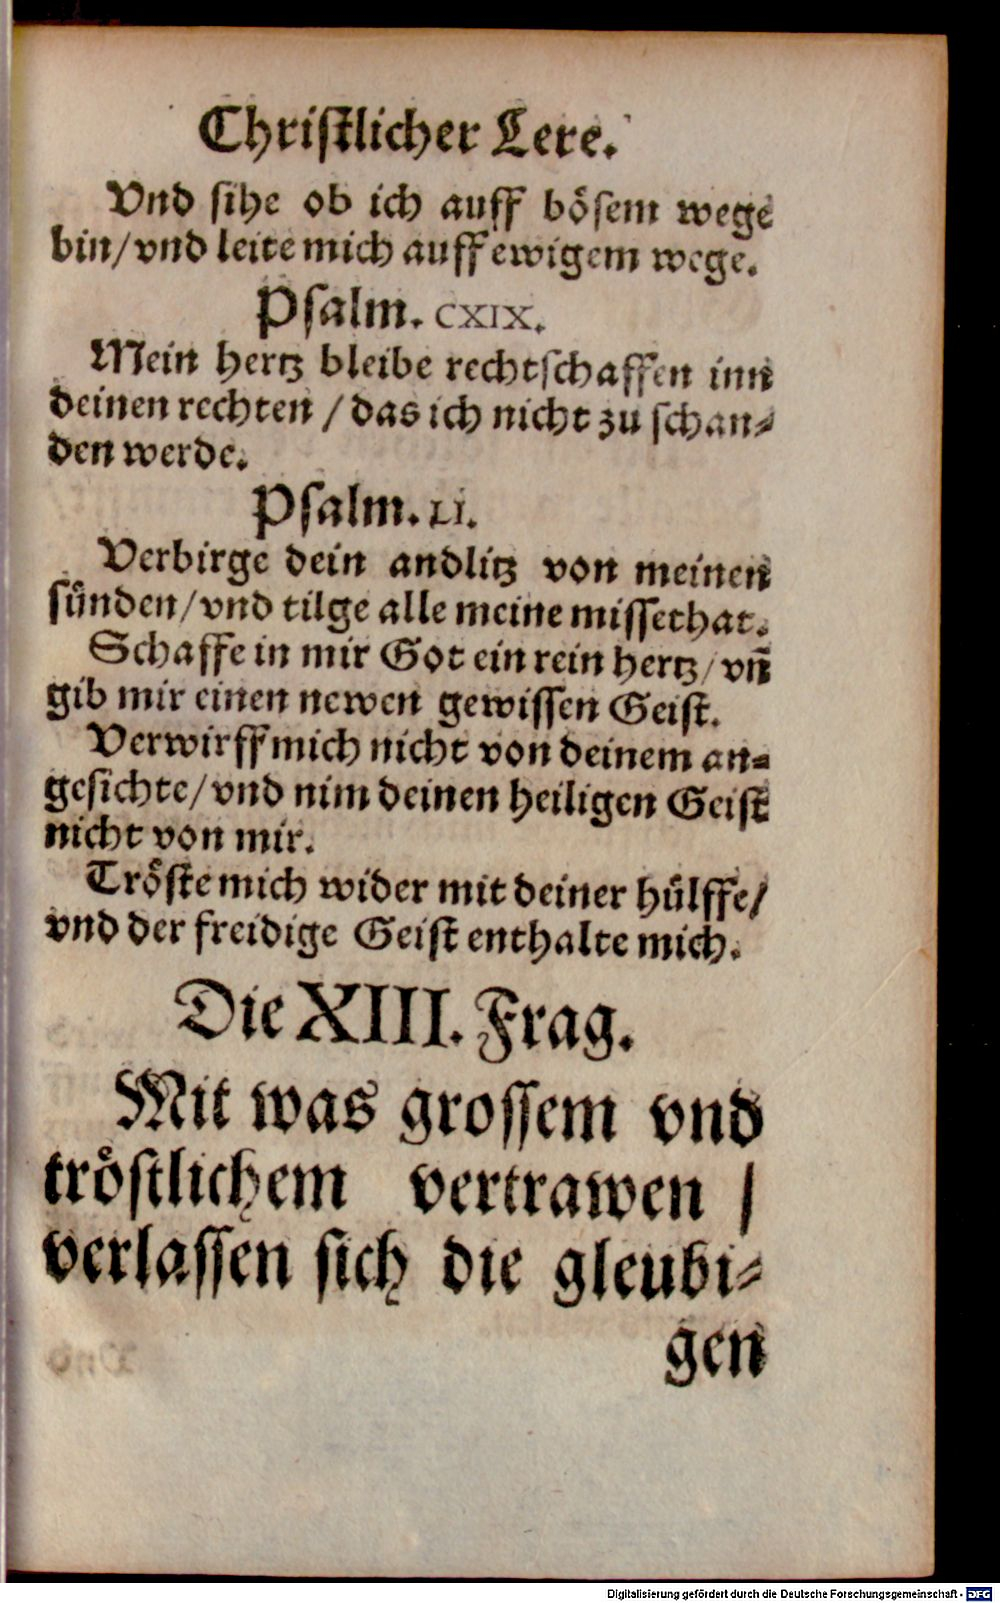 Christlicher Lere.
Vnd sihe ob ich auff bösem wege
bin/vnd leite mich auff ewigem wege.
Psalm. CXIX.
Mein hertz bleibe rechtschaffen inn
deinen rechten / das ich nicht zu schan-
den werde.
Psalm. LI.
Verbirge dein andlitz von meinen
sünden/vnd tilge alle meine missethat.
Schaffe in mir Got ein rein hertz/vn̄
gib mir einen newen gewissen Geist.
Verwirff mich nicht von deinem an-
gesichte/vnd nim deinen heiligen Geist
nicht von mir.
Tröste mich wider mit deiner hülffe/
vnd der freidige Geist enthalte mich.
Die XIII. Frag.
Mit was grossem vnd
tröstlichem vertrawen /
verlassen sich die gleubi-
gen
Digitalisierung gefördert durch die Deutsche Forschungsgemeinschaft - DFG